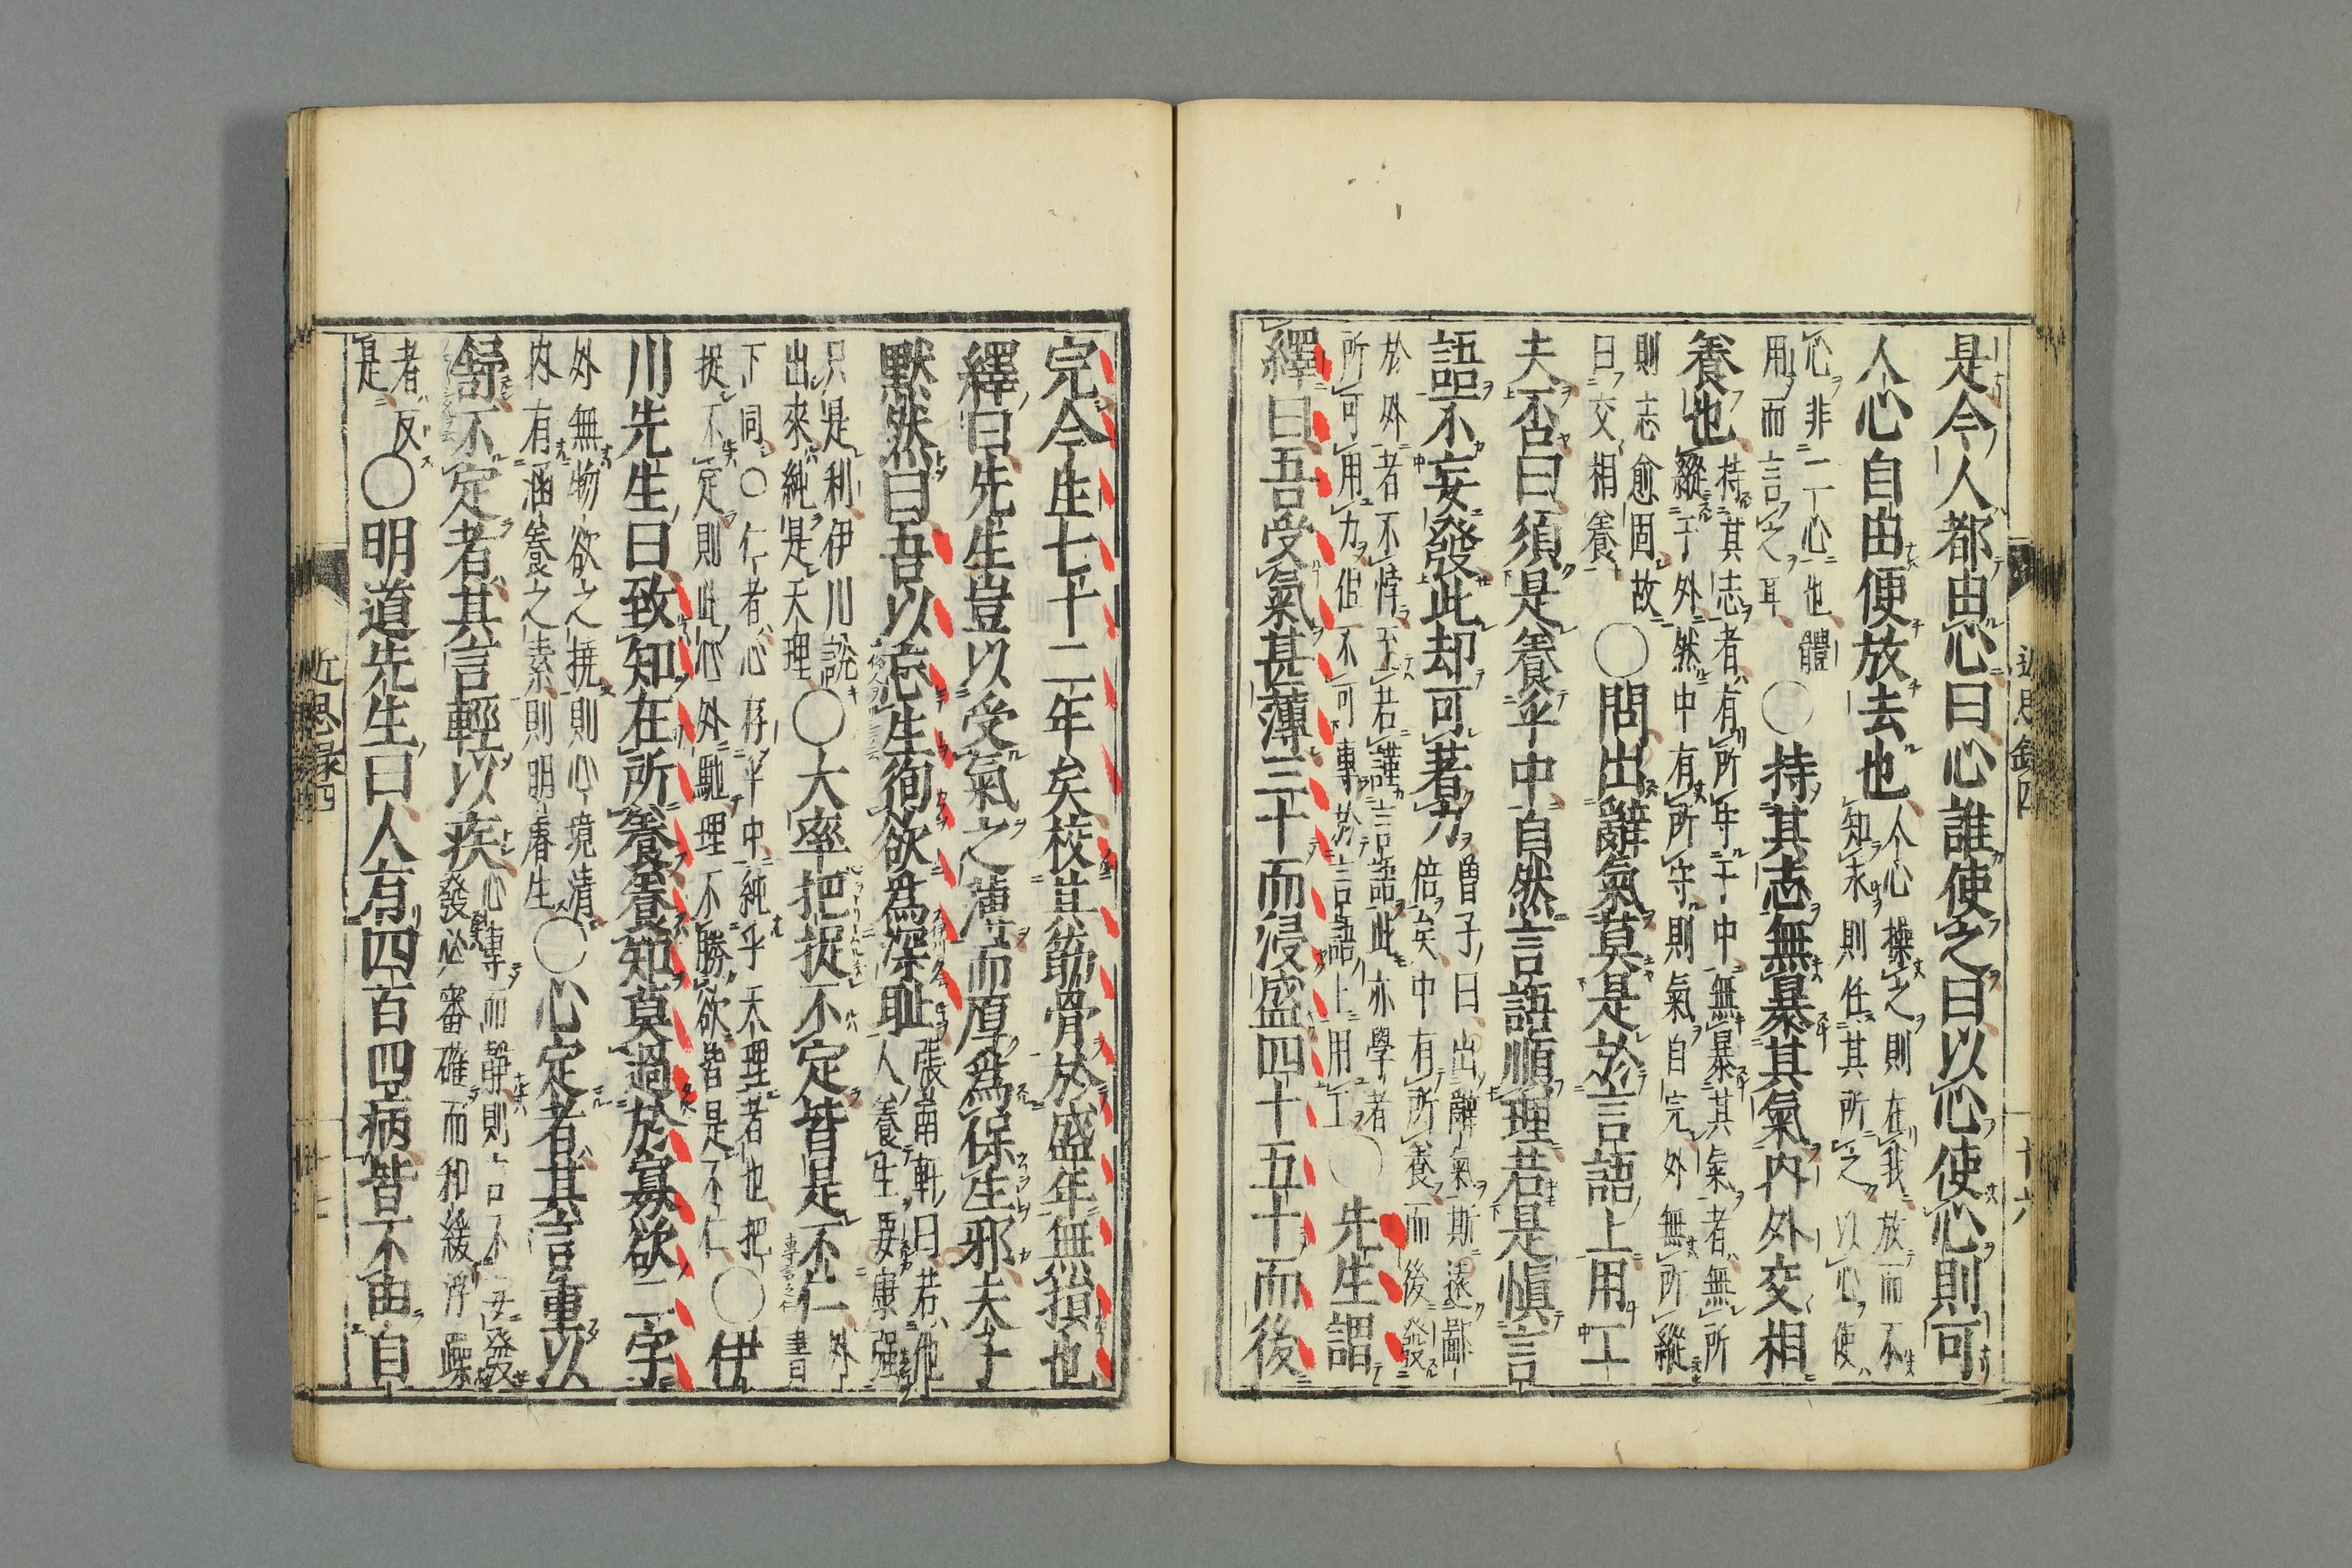 是今人都由心曰心誰使之曰以心使心則可
人心自由便放去也
人心操之則在我放而不
知求則任其所之以心使
心非二心也體
用而言之耳
○持其志無暴其氣内外交相
養也
持其志者有所守于中無暴其氣者無所
縱于外然中有所守則氣自完外無所縱
則志愈固故
曰交相養
○問出辭氣莫是於言語上用工
夫否曰須是養乎中自然言語順理若是慎言
語不妄發此却可著力
曽子曰出辭氣斯遠鄙
倍矣中有所養而後發
於外者不悖至若謹言語此亦學者
所可用力但不可專於言語上用工
○先生謂
繹曰吾受氣甚薄三十而浸盛四十五十而後
近思録四
十六
完今生七十二年矣校其筋骨於盛年無損也
繹曰先生豈以受氣之薄而厚爲保生邪夫子
默然曰吾以忘生徇欲爲深耻
張南軒曰若他
人養生要康强
只是利伊川說
出來純是天理
○大率把捉不定皆是不仁
外
書
下同○仁者心存乎中純乎天理者也把
捉不定則此心外馳理不勝欲皆是不仁
○伊
川先生曰致知在所養養知莫過於寡欲二字
外無物欲之撓則心境清
内有涵養之素則明睿生
○心定者其言重以
舒不定者其言輕以疾
心專而静則言不妄發
發必審確而和緩浮躁
者反
是
○明道先生曰人有四百四病皆不由自
近思録四